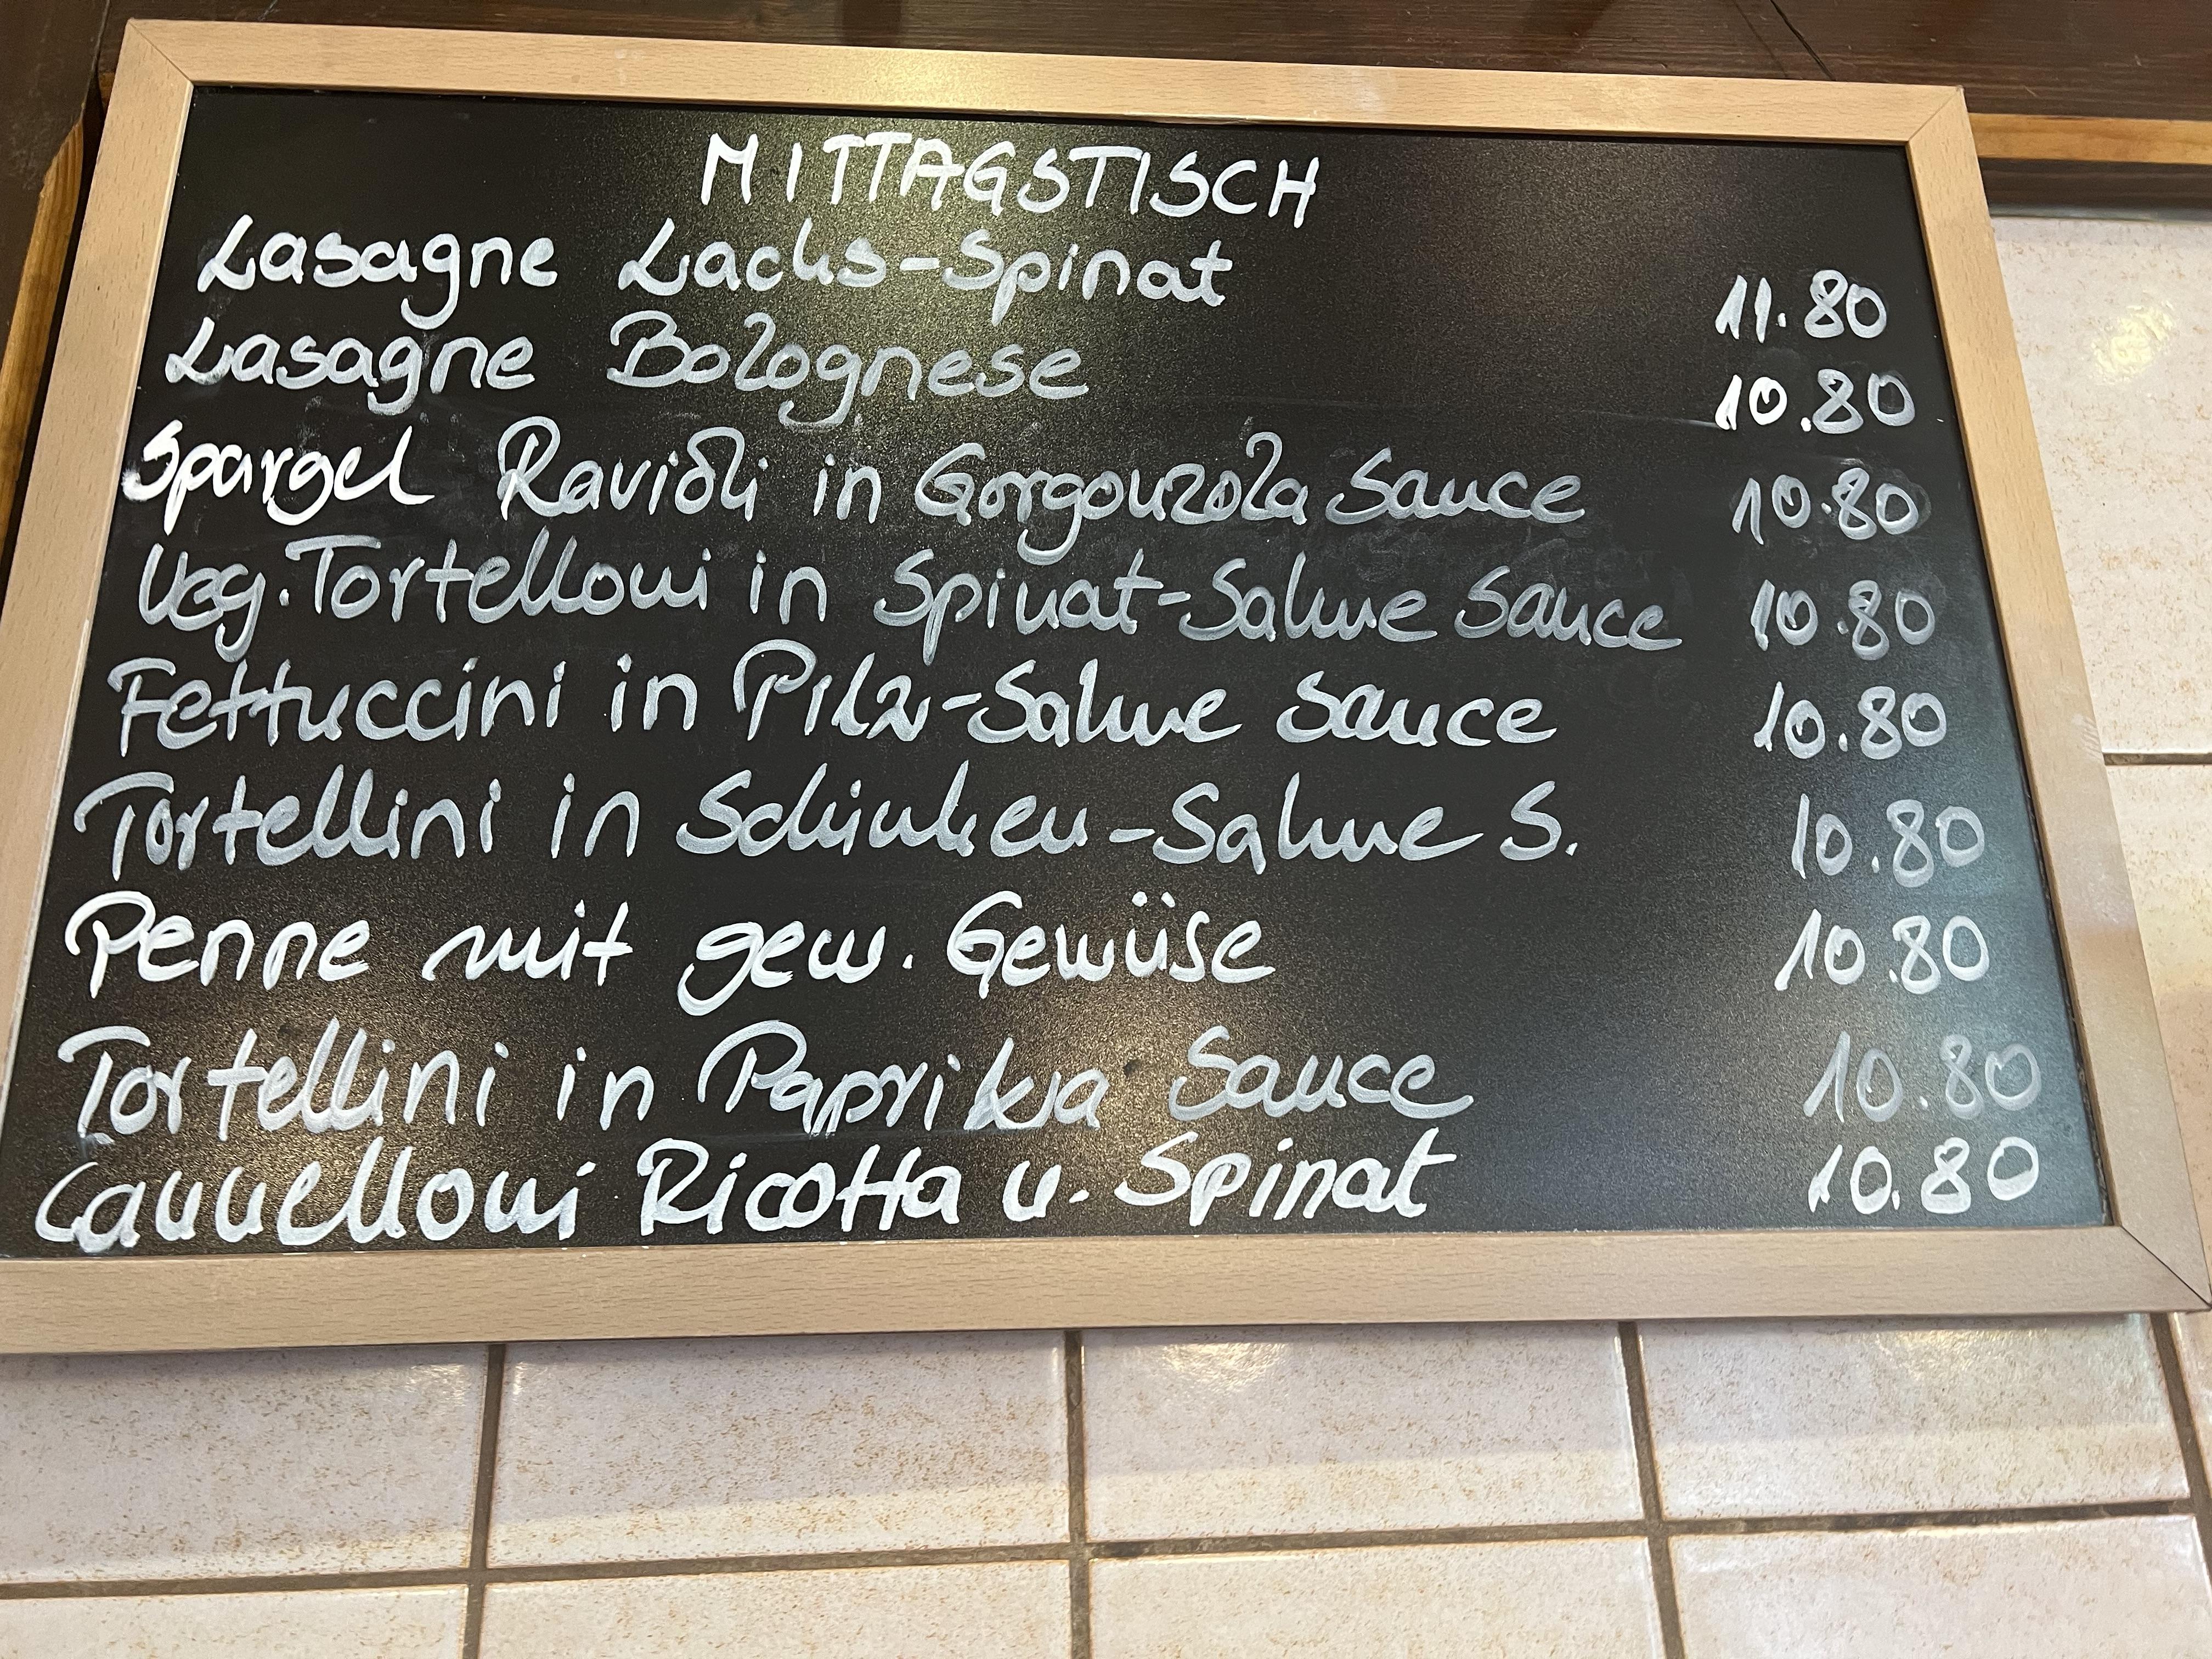 MITTAGSTISCH
Lasagne Lachs-Spinat 11.80
Lasagne Bolognese 10.80
Spargel Ravioli in Gorgonzola Sauce 10.80
Veg. Tortelloni in Spinat-Sahne Sauce 10.80
Fettuccini in Pilz-Sahne Sauce 10.80
Tortellini in Schinken-Sahne S. 10.80
Penne mit gew. Gewüse 10.80
Tortellini in Paprika Sauce 10.80
Cannelloni Ricotta u. Spinat 10.80